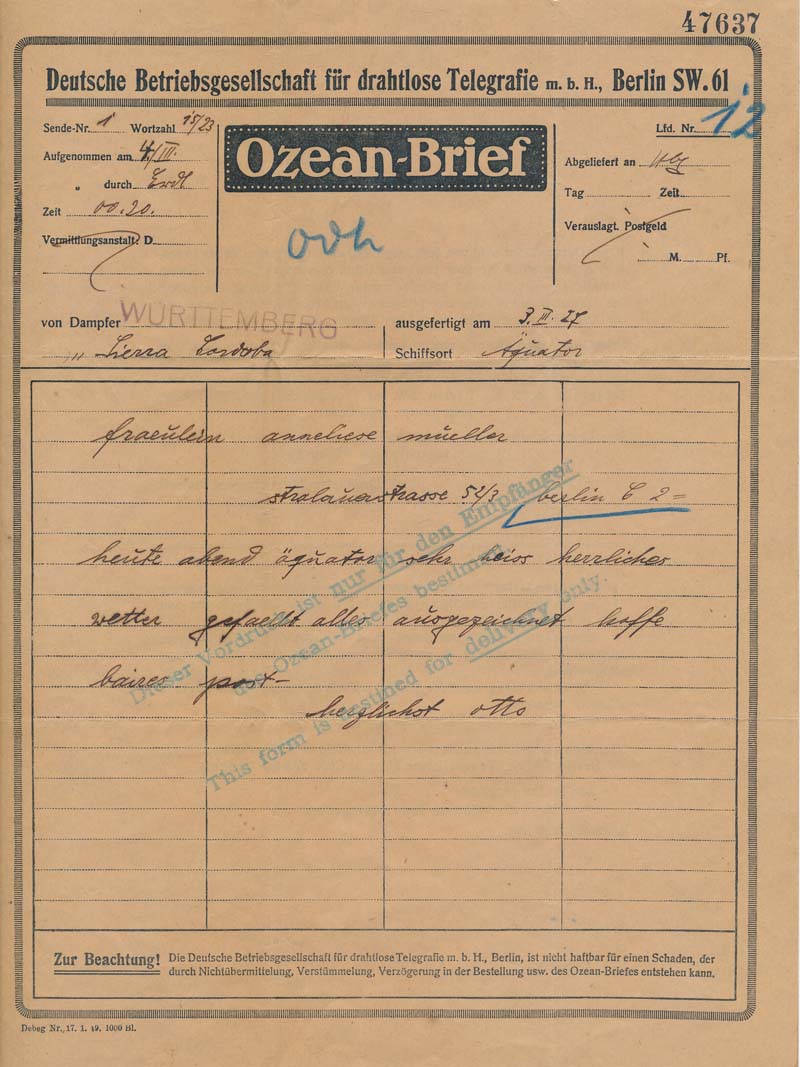 47637
Deutsche Betriebsgesellschaft für drahtlose Telegrafie m. b. H., Berlin SW. 61
Sende-Nr. 1 Wortzahl 15/23
Aufgenommen am 4/III.
„ durch Erdt
Zeit 00.20.
Vermittlungsanstalt: D.
Ozean-Brief
odh
Lfd. Nr. 12
Abgeliefert an Hbg
Tag Zeit
Verauslagt. Postgeld
M. Pf.
von Dampfer WÜRTTEMBERG
„ Sierra Cordoba
ausgefertigt am 3. III. 27
Schiffsort Äquator
fraeulein anneliese mueller
stralauerstrasse 52/3 berlin C 2 =
heute abend äquator sehr heiss herrliches
wetter gefaellt alles ausgezeichnet hoffe
baires post –
herzlichst otto
Dieser Vordruck ist nur für den Empfänger
des Ozean-Briefes bestimmt.
This form is destined for delivery only.
Zur Beachtung! Die Deutsche Betriebsgesellschaft für drahtlose Telegrafie m. b. H., Berlin, ist nicht haftbar für einen Schaden, der
durch Nichtübermittelung, Verstümmelung, Verzögerung in der Bestellung usw. des Ozean-Briefes entstehen kann.
Debeg Nr., 17. 1. 19. 1000 Bl.